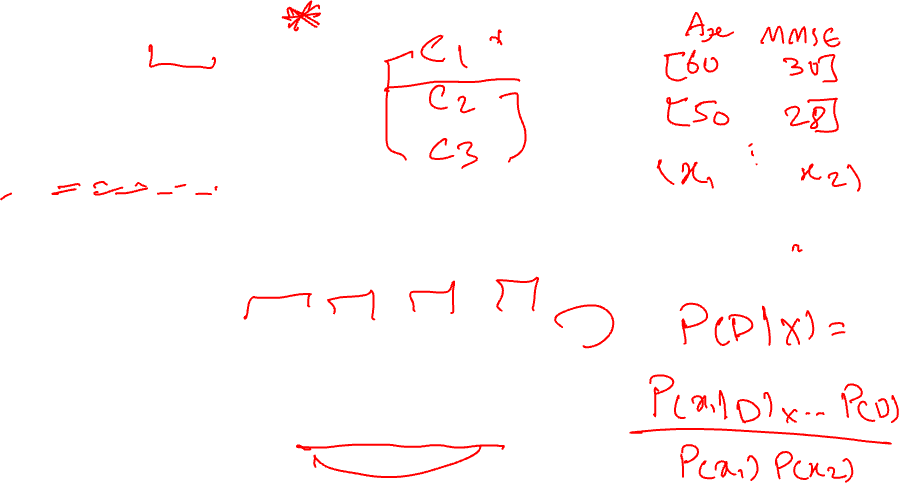 C1
C2
C3
Age MMSE
[60 30]
[50 28]
(x1 x2)
P(D|X) =
P(x1|D) x... P(D)
P(x1) P(x2)